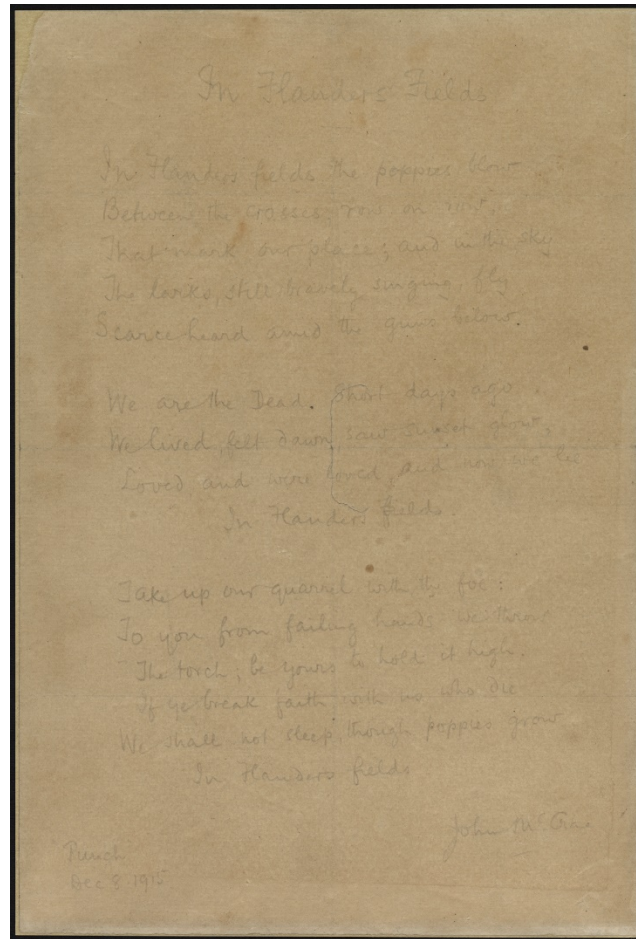 In Flanders Fields
In Flanders fields the poppies blow
Between the crosses, row on row,
That mark our place; and in the sky
The larks, still bravely singing, fly
Scarce heard amid the guns below.
We are the Dead. Short days ago
We lived, felt dawn, saw sunset glow,
Loved and were loved, and now we lie
In Flanders fields.
Take up our quarrel with the foe:
To you from failing hands we throw
The torch; be yours to hold it high.
If ye break faith with us who die
We shall not sleep, though poppies grow
In Flanders fields
John McCrae
Dec 8 1915